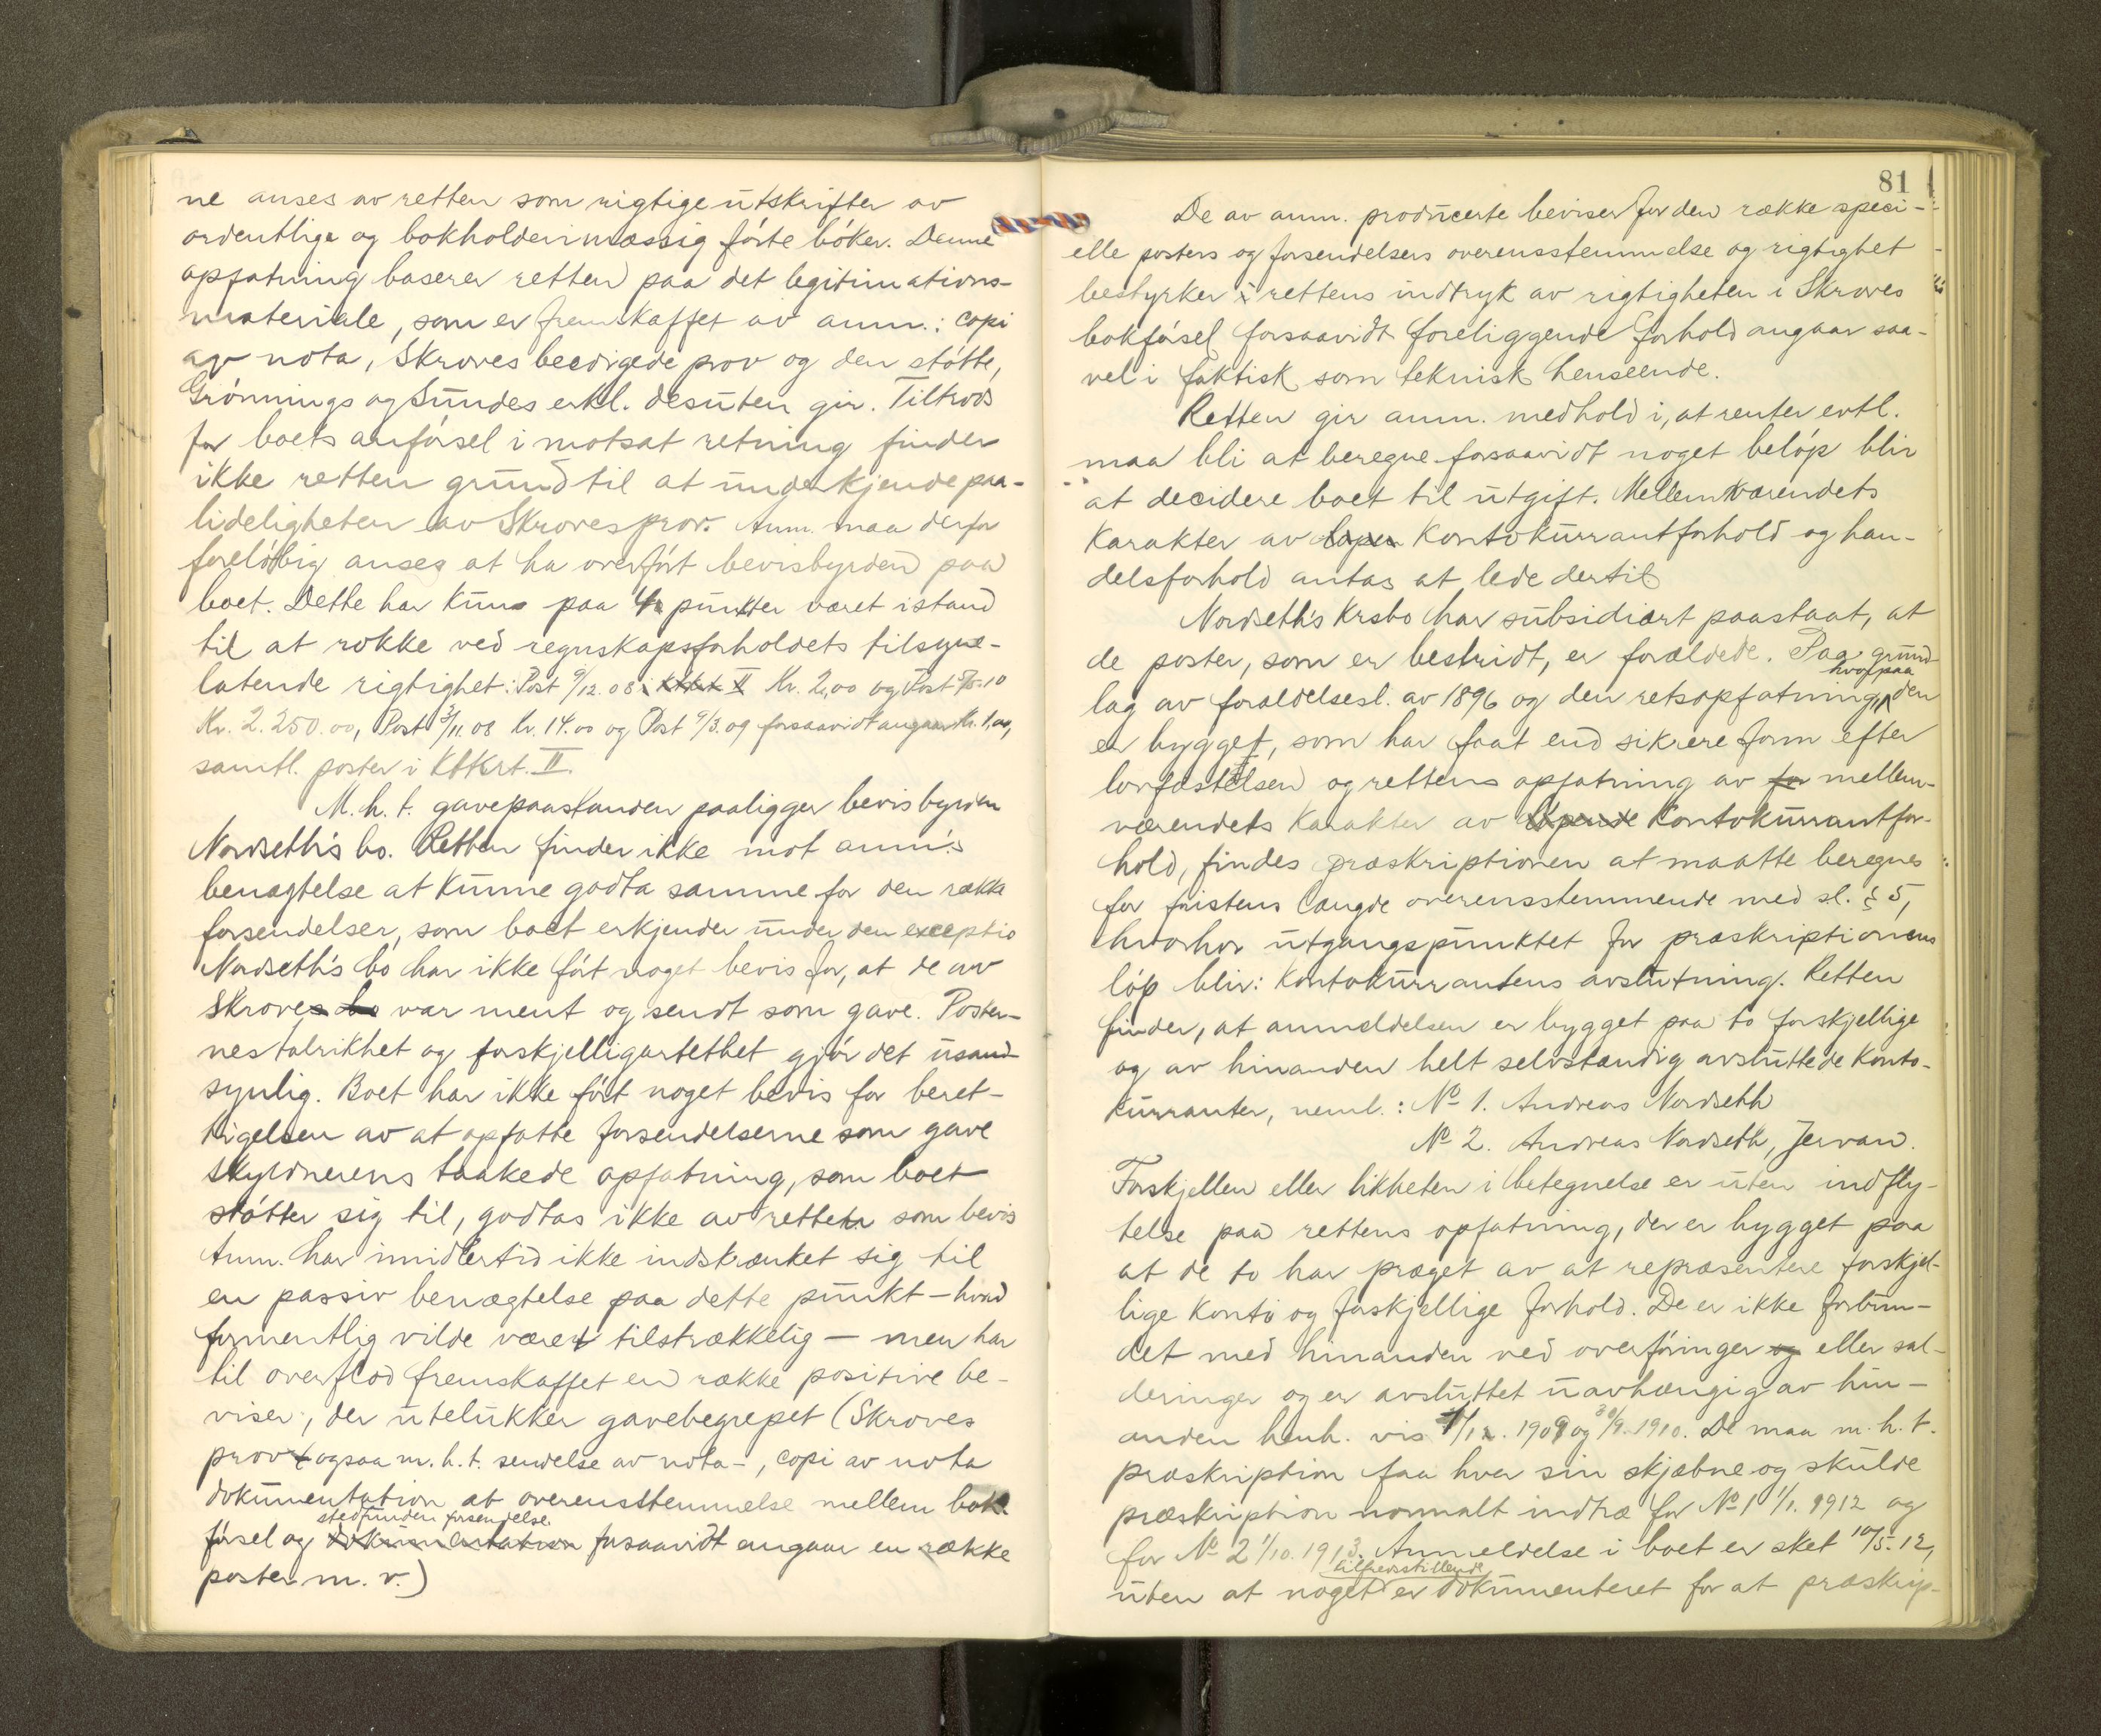 ne anses av retten som rigtige utskrifter av
ordentlige og bokholderimæssig førte bøker. Denne
opfatning baserer retten paa det legitimations-
materiale, som er fremskaffet av anm.: copi
av nota, Skroves beedigede prov og den støtte,
Grønnings og Sundes erkl. desuten gir. Tiltrods
for boets anførsel i motsat retning finder
ikke retten grund til at underkjende paa-
lideligheten av Skroves prov. Anm. maa derfor
foreløbig anses at ha overført bevisbyrden paa
boet. Dette har kun paa 4 punkter været istand
til at rokke ved regnskapsforholdets tilsyne-
latende rigtighet: Post 9/12.08 Kr. 2,00 og Post 5/5.10
Kr. 2.250.00, Post 3/11.08 kr. 14.00 og Post 9/3.09 forsaavidt angaar Kr. 1,00,
samtl. poster i Ktkrt. II.
M.h.t. gavepaastanden paaligger bevisbyrden
Nordseth's bo. Retten finder ikke mot anm's
benægtelse at kunne godta samme for den række
forsendelser, som boet erkjender under den exceptio
Nordseth's bo har ikke ført noget bevis for, at de av
Skrove var ment og sendt som gave. Poster-
nes talrikhet og forskjelligartethet gjør det usand-
synlig. Boet har ikke ført noget bevis for beret-
tigelsen av at opfatte forsendelserne som gave
Skyldnerens taakede opfatning, som boet
støtter sig til, godtas ikke av retten som bevis
Anm. har imidlertid ikke indskrænket sig til
en passiv benægtelse paa dette punkt – hvad
formentlig vilde været tilstrækkelig – men har
til overflod fremskaffet en række positive be-
viser, der utelukker gavebegrepet (Skroves
prov ogsaa m.h.t. sendelse av nota –, copi av nota
dokumentation at overensstemmelse mellem bok
førsel og stedfunden forsendelse forsaavidt angaar en række
poster m.v.)
81
De av anm. producerte beviser for den række speci-
elle posters og forsendelsers overensstemmelse og rigtighet
bestyrker rettens indtryk av rigtigheten i Skroves
bokførsel forsaavidt foreliggende forhold angaar saa-
vel i faktisk som teknisk henseende.
Retten gir anm. medhold i, at renter evtl.
maa bli at beregne forsaavidt noget beløp blir
at decidere boet til utgift. Mellemværendets
karakter av kontokurrantforhold og han-
delsforhold antas at lede dertil
Nordseth's krsbo har subsidiært paastaat, at
de poster, som er bestridt, er forældede. Paa grund-
lag av forældelsesl. av 1896 og den retsopfatning, hvorpaa den
er bygget, som har faat end sikrere form efter
lovfæstelsen og rettens opfatning av mellem-
værendets karakter av kontokurrantfor-
hold, findes præskriptionen at maatte beregnes
for fristens længde overensstemmende med sl. § 5,
hvorhos utgangspunktet for præskriptionens
løp blir: kontokurrantens avslutning. Retten
finder, at anmeldelsen er bygget paa to forskjellige
og av hinanden helt selvstændig avsluttede konto-
kurranter, neml.: No 1. Andreas Nordseth
No 2. Andreas Nordseth, Jervan.
Forskjellen eller likheten i betegnelse er uten indfly-
telse paa rettens opfatning, der er bygget paa
at de to har præget av at repræsentere forskjel-
lige konti og forskjellige forhold. De er ikke forbun-
det med hinanden ved overføringer eller sal-
deringer og er avsluttet uavhængig av hin-
anden henh. vis 1/12. 1909 og 30/9. 1910. De maa m.h.t.
præskription faa hver sin skjæbne og skulde
præskription normalt indtræ for No 1 1/1. 1912 og
for No 2 1/10. 1913. Anmeldelse i boet er sket 10/5.12,
uten at noget tilfredsstillende er dokumenteret for at præskrip-